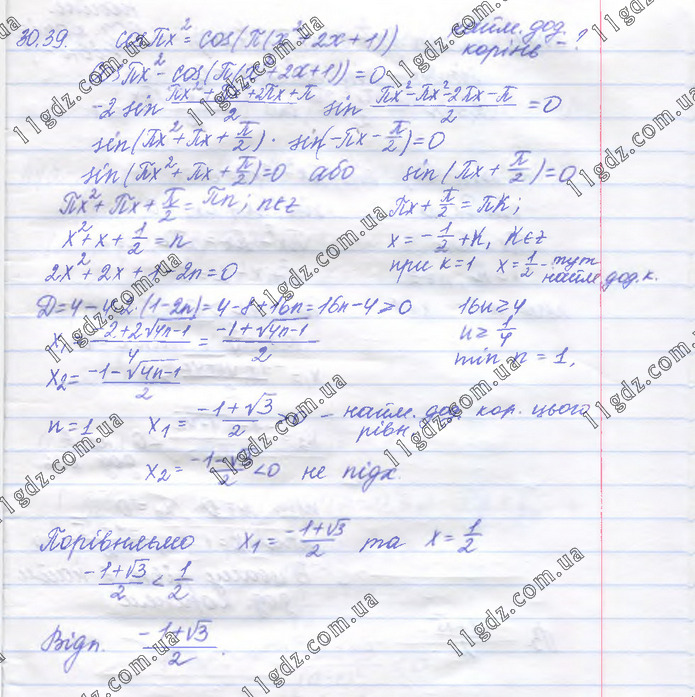 30.39. cosπx² = cos(π(x²+2x+1)) найм. дод. корінь - ?
cosπx² - cos(π(x²+2x+1)) = 0
-2 sin (πx²+πx²+2πx+π)/2 sin (πx²-πx²-2πx-π)/2 = 0
sin(πx²+πx+π/2) · sin(-πx-π/2) = 0
sin(πx²+πx+π/2)=0 або sin(πx+π/2)=0
πx²+πx+π/2 = πn; n∈z πx+π/2 = πk;
x²+x+1/2 = n x = -1/2+k, k∈z
2x²+2x+1-2n=0 при k=1 x=1/2 - тут найм дод.к.
D=4-4·2·(1-2n)=4-8+16n=16n-4≥0 16n≥4
x₁ = (-2+2√4n-1)/4 = (-1+√4n-1)/2 n≥1/4
x₂ = (-1-√4n-1)/2 min n = 1,
n=1 x₁ = (-1+√3)/2 - найм. дод. кор. цього рівн
x₂ = (-1-√3)/2 <0 не підх.
Порівняємо x₁ = (-1+√3)/2 та x = 1/2
(-1+√3)/2 < 1/2
Відп. (-1+√3)/2.
11gdz.com.ua